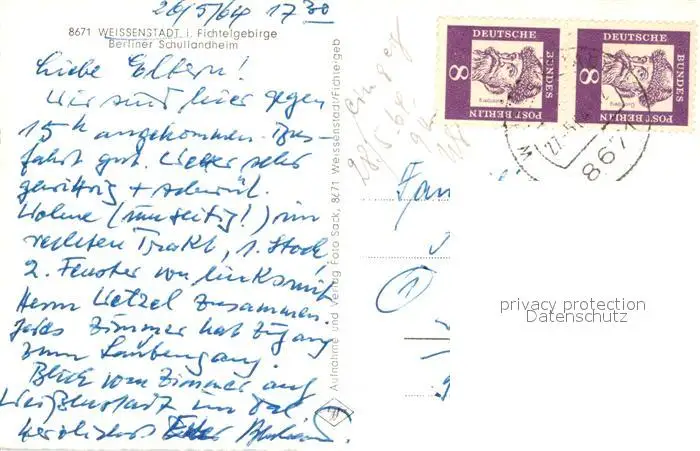 26/5/64 17 30
8671 WEISSENSTADT i. Fichtelgebirge
Berliner Schullandheim
Liebe Eltern!
Wir sind hier gegen
15h angekommen.
fahrt gut. Wetter sehr
gewittrig + schwül.
Wohne (einseitig!) im
rechten Trakt, 1. Stock
2. Fenster von links mit
Herrn Wetzel zusammen.
Jedes Zimmer hat Zugang
zum Laubengang.
Blick vom Zimmer auf
Weißenstadt im Tal
herzlichst Euer
Aufnahme und Verlag Foto Sack, 8671 Weissenstadt/Fichtelgeb
28/5.64
DEUTSCHE BUNDES
POST BERLIN
8
DEUTSCHE BUNDES
POST BERLIN
8
27.5
8671
Fam
1
privacy protection
Datenschutz